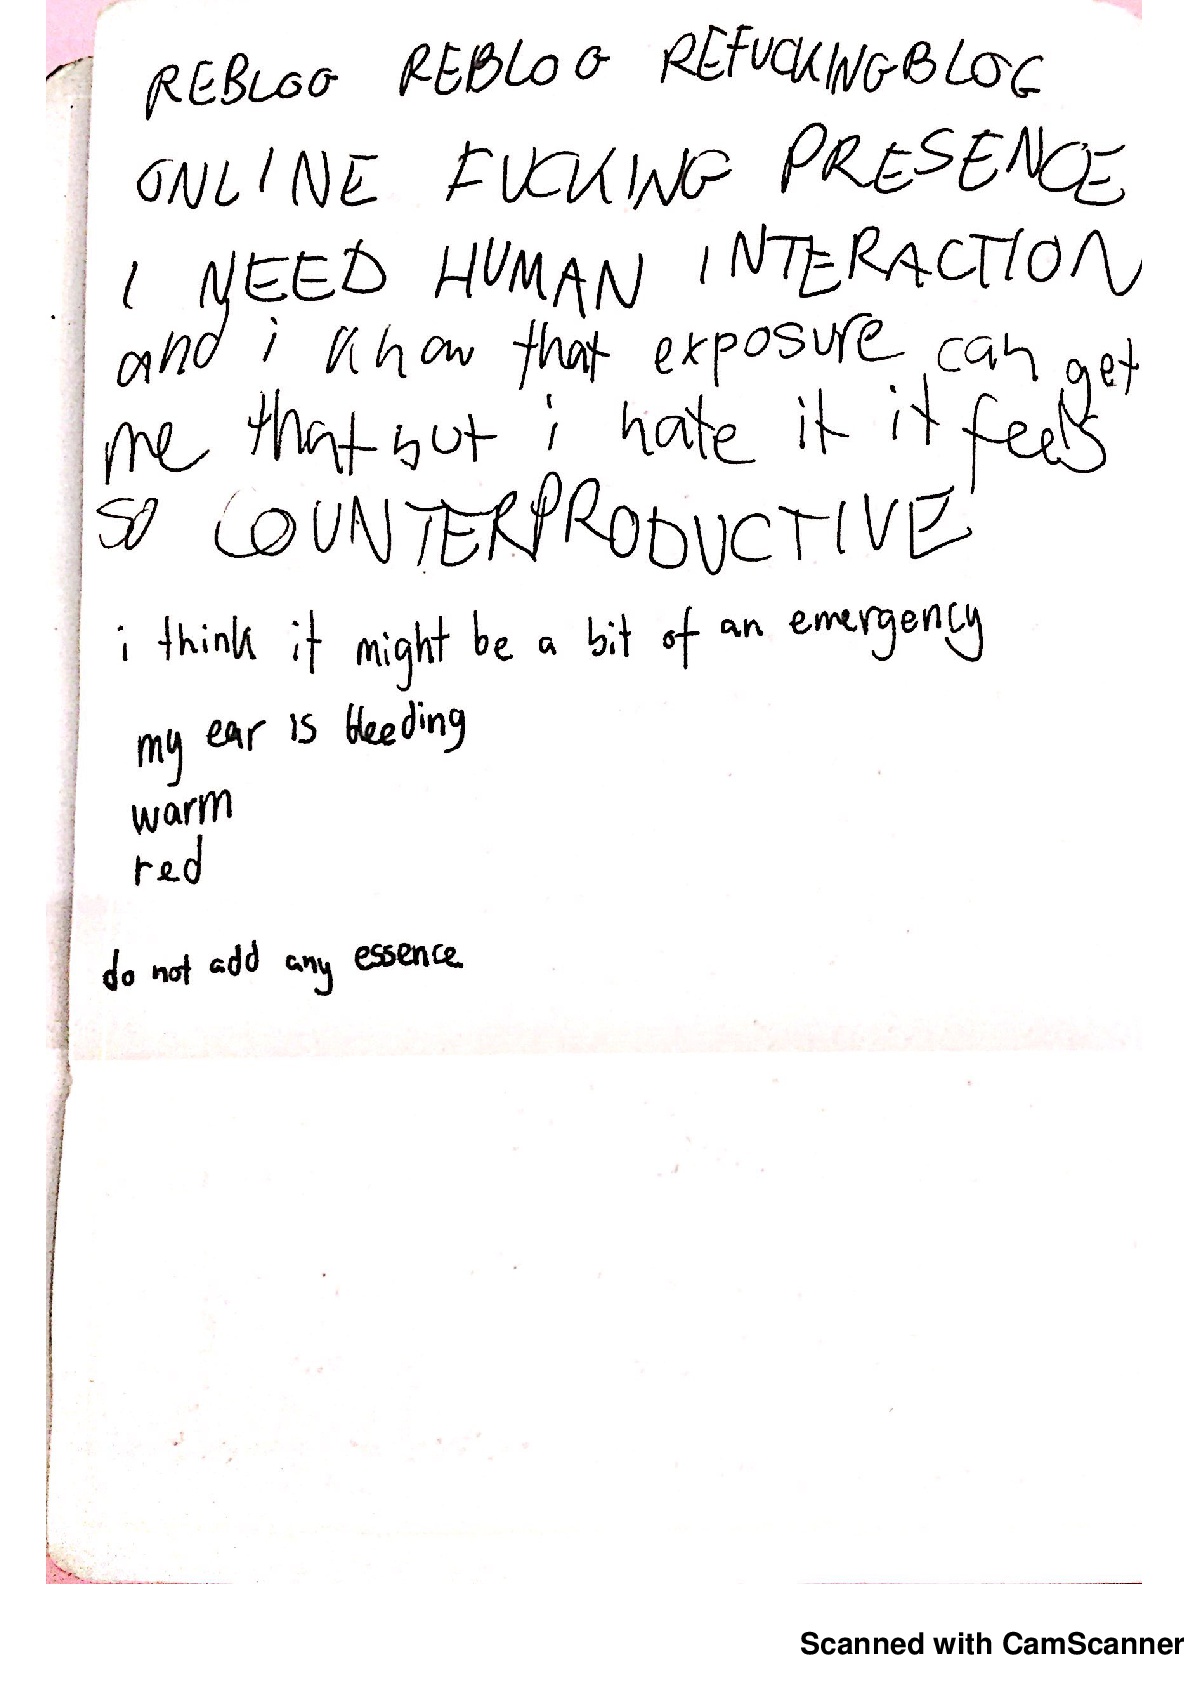 REBLOG REBLOG REFUCKINGBLOG
ONLINE FUCKING PRESENCE
I NEED HUMAN INTERACTION
and i know that exposure can get
me that but i hate it it feels
so COUNTERPRODUCTIVE
i think it might be a bit of an emergency
my ear is bleeding
warm
red
do not add any essence
Scanned with CamScanner